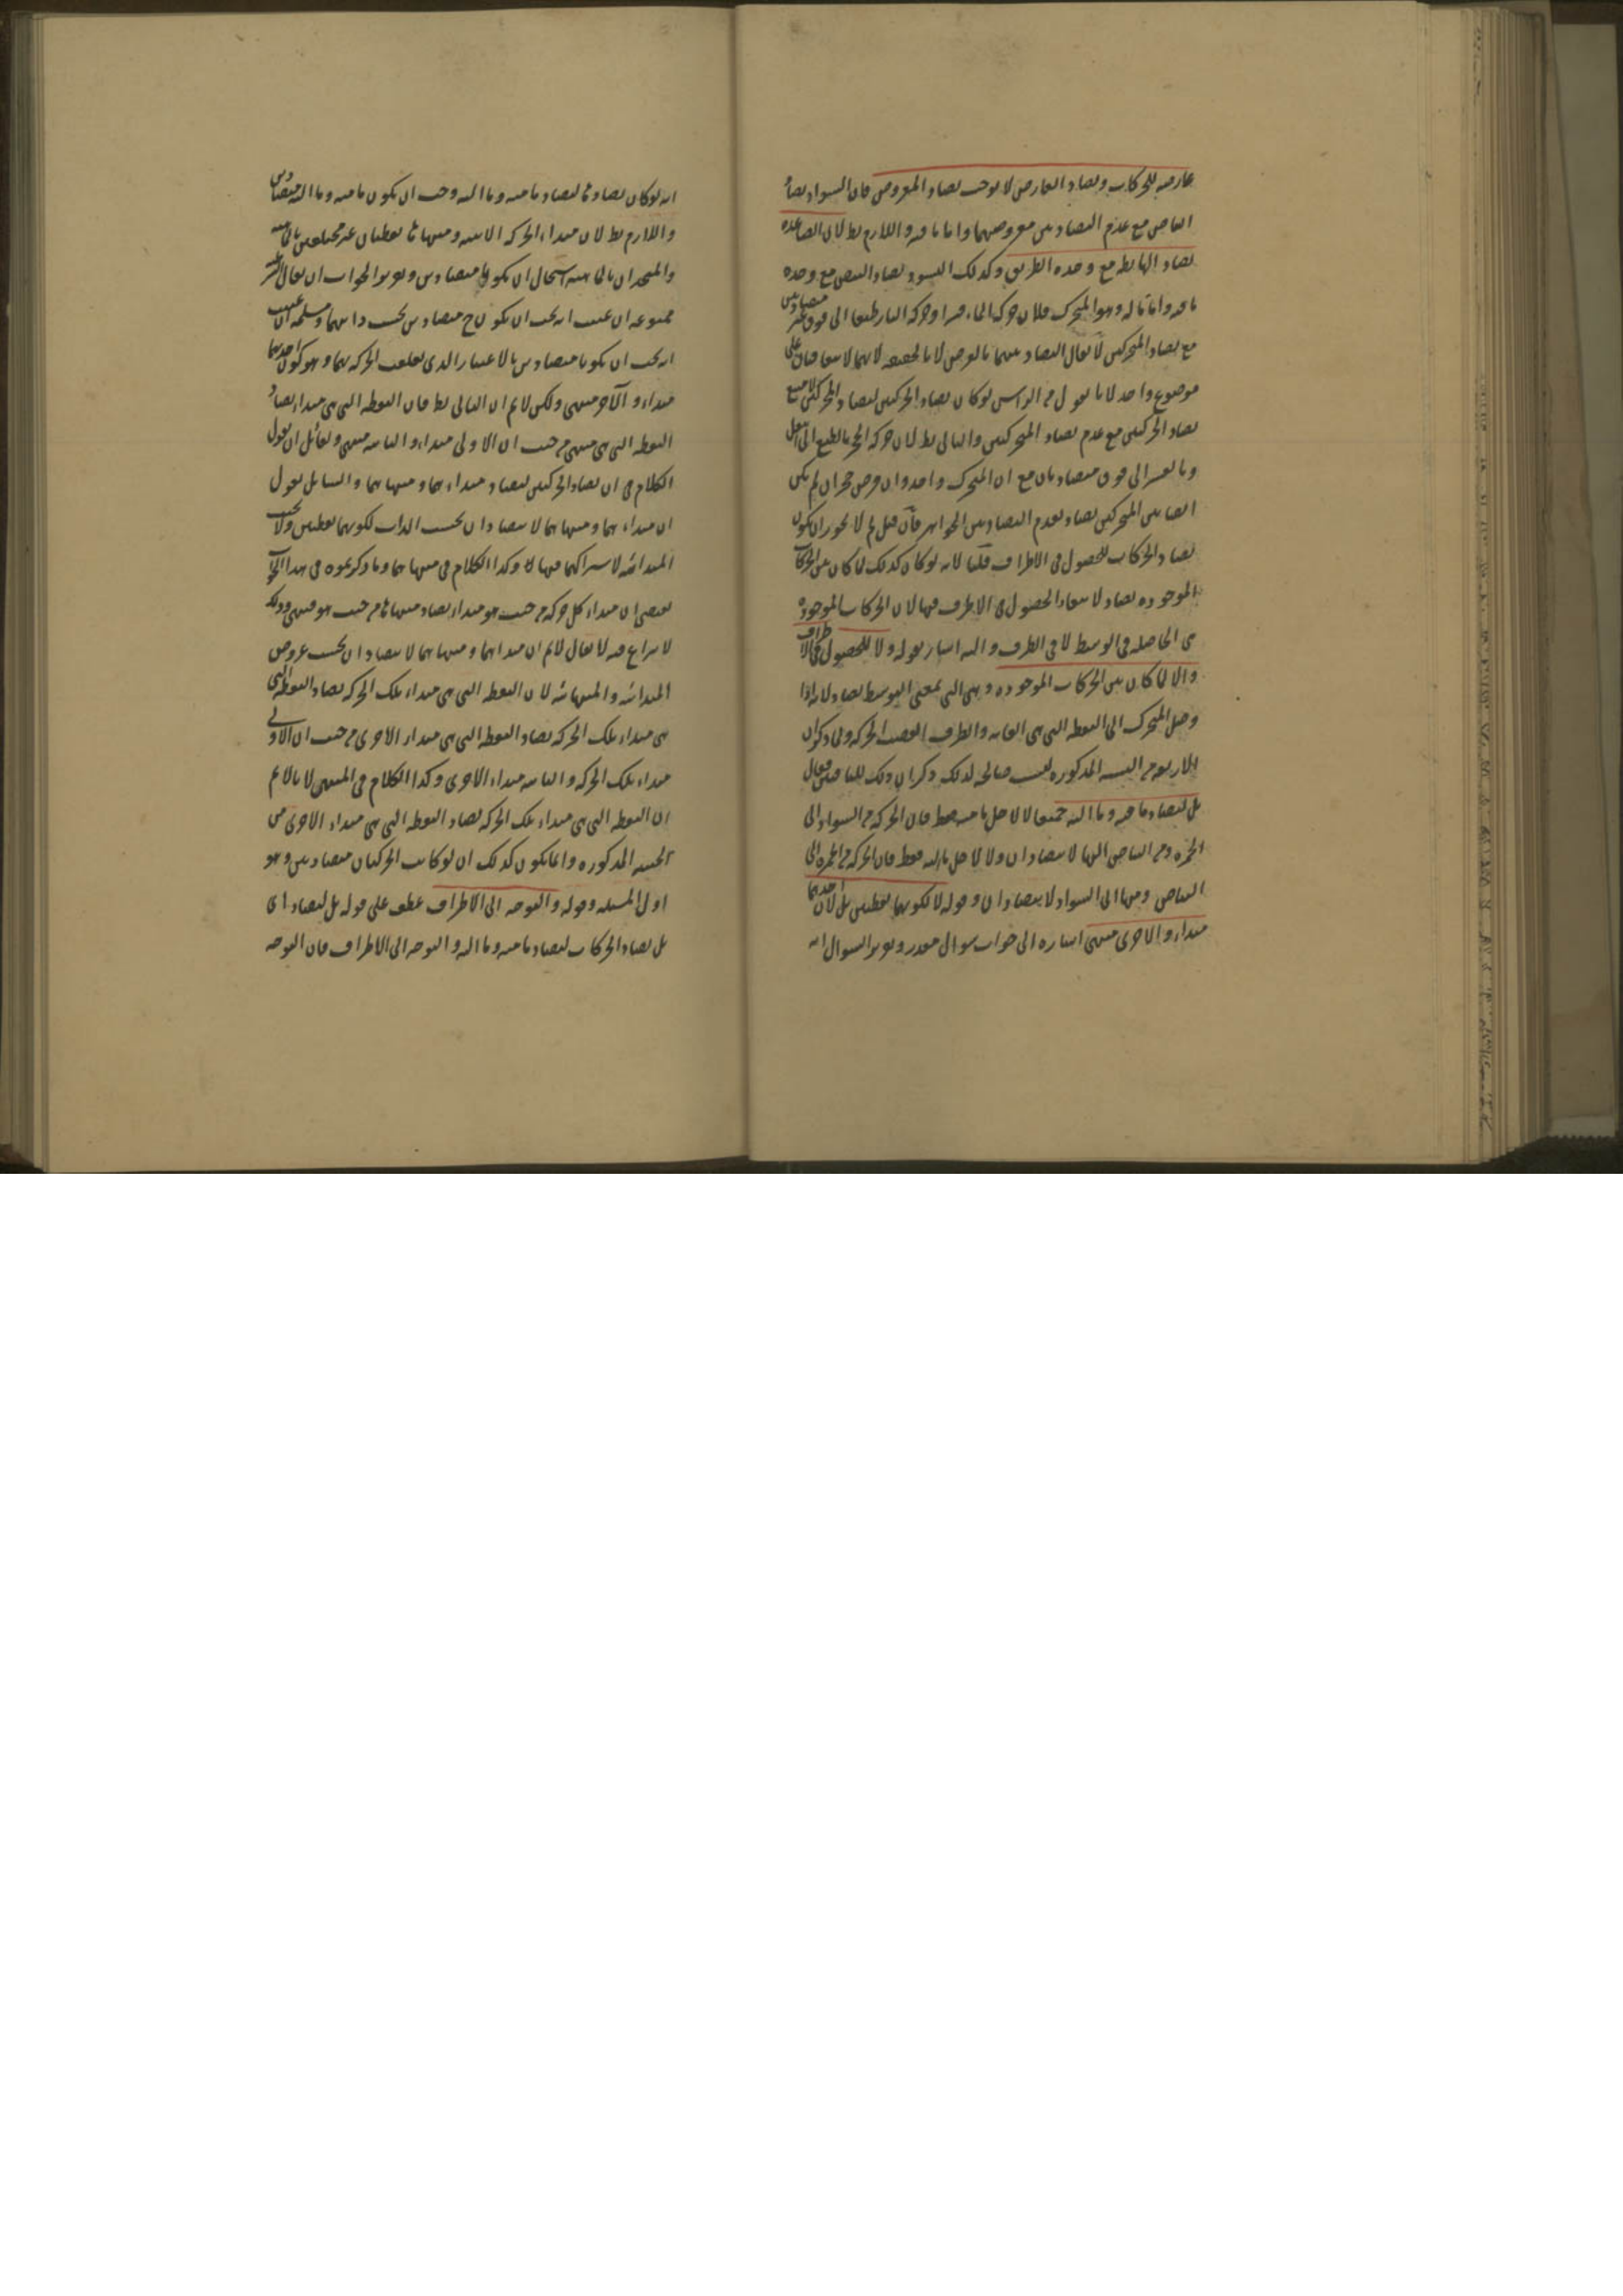 عارضة للحركات وتضاد العارض لا يوجب تضاد المعروض فان السواد يضاد
البياض مع عدم التضاد بين معروضيهما واما ما فيه واللازم بط لان الصاعده
تضاد الهابطه مع وحده الطريق وكذلك التسود يضاد التبيض مع وحده
ما فيه واما ما له وهو المتحرك فلان حركه الماء قسرا وحركه النار طبعا الى فوق غير متضادتين
مع تضاد المتحركين لا يقال التضاد بينهما بالعرض لا بالحقيقه لانهما لا يتعاقبان على
موضوع واحد لانا نقول من الراس لو كان تضاد الحركتين لتضاد المتحركين لامتنع
تضاد الحركتين مع عدم تضاد المتحركين والتالى بط لان حركه الحجر بالطبع الى اسفل
وبالقسر الى فوق متضادتان مع ان المتحرك واحد وان فرض حجران لم يكن
ايضا بين المتحركين تضاد لعدم التضاد بين الجواهر فان قيل لم لا يجوز ان يكون
تضاد الحركات للحصول فى الاطراف قلنا لانه لو كان كذلك لما كان بين الحركات
الموجوده تضاد لانتفاء الحصول فى الاطراف فيها لان الحركات الموجوده
هى الحاصله فى الوسط لا فى الطرف واليه اشار بقوله ولا للحصول فى الاطراف
والا لما كان بين الحركات الموجوده وهى التى بمعنى التوسط تضاد لانه اذا
وصل المتحرك الى النقطه التى هى الغايه والطرف انقضت الحركه ولما ذكر ان
الاربعه من السته المذكوره ليست صالحه لذلك ذكر ان ذلك للباقيين فقال
بل لتضاد ما منه وما اليه جميعا لا لاجل ما منه فقط فان الحركه من السواد الى
الحمره ومن البياض اليها لا يتضادان ولا لاجل ما اليه فقط فان الحركه من الحمره الى
البياض ومنها الى السواد لا يتضادان وقوله لا لكونهما نقطتين بل لان احديهما
مبداء والاخرى منتهى اشاره الى جواب سوال مقدر وتقرير السوال انه
انه لو كان تضادها لتضاد ما منه وما اليه وجب ان يكون ما منه وما اليه متضادين
واللازم بط لان مبداء الحركه الاينيه ومنتهاها نقطتان غير مختلفتين بالماهيه
والمتحدان بالماهيه استحال ان يكونا متضادين وتقرير الجواب ان يقال الشرطيه
ممنوعه ان عنيت انه يجب ان يكونا ح متضادين بحسب ذاتيهما ومسلمه ان عنيت
انه يجب ان يكونا متضادين بالاعتبار الذى تعلقت الحركه بهما وهو كون احديهما
مبداء والآخر منتهى ولكن لا نم ان التالى بط فان النقطه التى هى مبداء تضاد
النقطه التى هى منتهى من حيث ان الاولى مبداء والثانيه منتهى ولقائل ان يقول
الكلام فى ان تضاد الحركتين لتضاد مبداءيهما ومنتهاهما والسائل يقول
ان مبداءيهما ومنتهاهما لا يتضادان بحسب الذات لكونهما نقطتين ولا بحسب
المبدائيه لاشتراكهما فيها وكذا الكلام فى منتهاهما وما ذكرتموه فى هذا الجواب
يقتضى ان مبداء كل حركه من حيث هو مبداء يضاد منتهاها من حيث هو منتهى وذلك
لا نزاع فيه لا يقال لا نم ان مبداهما ومنتهاهما لا يتضادان بحسب عروض
المبدائيه والمنتهائيه لان النقطه التى هى مبداء تلك الحركه تضاد النقطه التى
هى مبداء تلك الحركه تضاد النقطه التى هى مبداء الاخرى من حيث ان الاولى
مبداء تلك الحركه والثانيه مبداء الاخرى وكذا الكلام فى المنتهى لانا لا نم
ان النقطه التى هى مبداء تلك الحركه تضاد النقطه التى هى مبداء الاخرى من
الحيثيه المذكوره وانما يكون كذلك ان لو كانت الحركتان متضادتين وهو
اول المسئله وقوله والتوجه الى الاطراف عطف على قوله بل لتضاد اى
بل تضاد الحركات لتضاد ما منه وما اليه والتوجه الى الاطراف فان التوجه